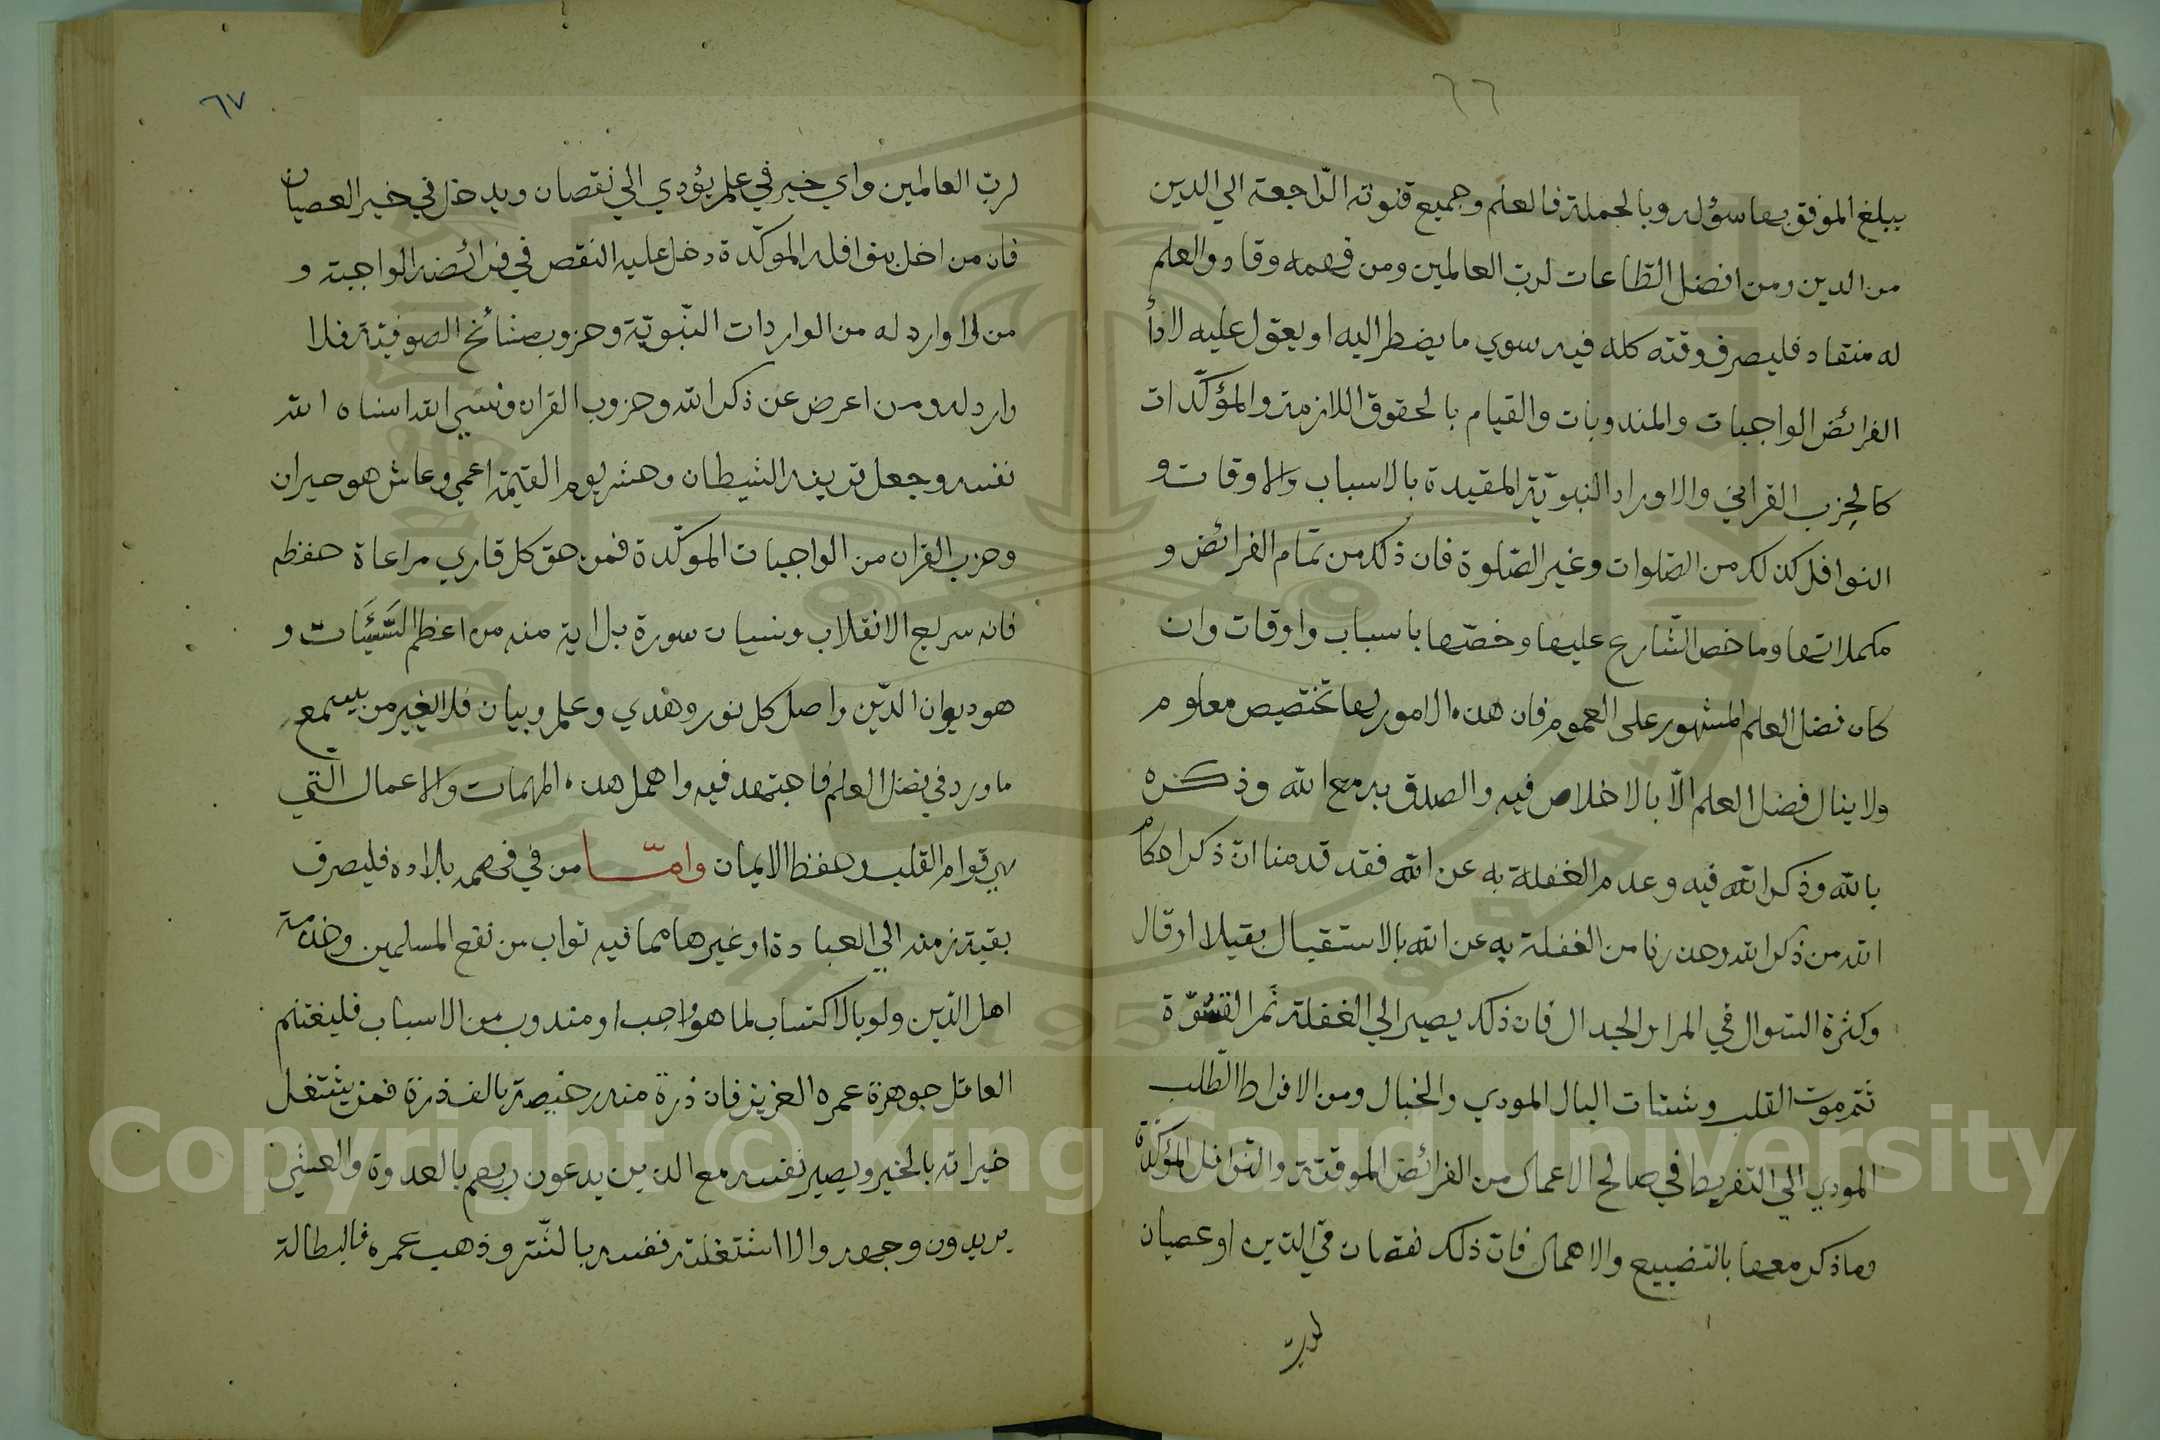 ٦٦
يبلغ الموفق بها سؤله وبالجملة فالعلم وجميع قنوته الراجعة الي الدين
من الدين ومن افضل الطاعات لرب العالمين ومن فهمه وقاد والعلم
له منقاد فليصرف وقته كله فيه سوي ما يضطر اليه او يعول عليه لاداء
الفرائض الواجبات والمندوبات والقيام بالحقوق اللازمة والمؤكّدات
كالحزب القراني والاوراد النبويّة المقيدة بالاسباب والاوقات و
النوافل كذلك من الصّلوات وغير الصّلوة فان ذلك من تمام الفرائض و
مكملاتها وما خص الشّارع عليها وخصّها باسباب واوقات وان
كان فضل العلم المشهور على العموم فان هذه الامور لها تختصيص معلوم
ولا ينال فضل العلم الّا بالاخلاص فيه والصدق به مع الله وذكره
بالله وذكر الله فيه وعدم الغفلة به عن الله فقد قدمنا انّ ذكر احكام
الله من ذكر الله وحذرنا من الغفلة به عن الله بالاستقبال بقيل او قال
وكثرة السّوال في المرا والجدال فان ذلك يصير الي الغفلة ثم القسوّة
ثم موت القلب وشتات البال المودي والخبال ومن الافراط الطّلب
المودي الي التفريط في صالح الاعمال من الفرائض الموقتة والنوافل المؤكدة
وما ذكر معها بالتضييع والاهمال فانّ ذلك نقصان في الدّين او عصيان
لربّ
٦٧
لربّ العالمين واي خير في علم يؤدي الي نقصان ويدخل في خير العصيان
فان من اخل بنوافله الموكّدة دخل عليه النقص في فرائضه الواجبة و
من لا وارد له من الواردات النّبويّة وحزوب مشائخ الصوفيّة فلا
وارد له ومن اعرض عن ذكر الله وحزوب القران ونسي الله انساه الله
نفسه وجعل قرينه الشيطان وحشر يوم القيمة اعمي وعاش هو حيران
وحزب القران من الواجبات الموكّدة فمن حق كل قاري مراعاة حفظه
فانه سريع الانقلاب ونسيان سورة بل اية منه من اعظم السّيّئات و
هو ديوان الدّين واصل كل نور وهدي وعلم وبيان فلا يغير من يسمع
ما ورد في فضل العلم فاجتهد فيه واهمل هذه المهمات والاعمال التي
بها قوام القلب وحفظ الايمان وامّا من في فهمه بلادة فليصرف
بقية زمنه الي العبادة او غيرها مما فيه ثواب من نفع المسلمين وخدمة
اهل الدّين ولو بالاكتساب لما هو واجب او مندوب من الاسباب فليغتنم
العاقل جوهرة عمره العزيز فان ذرة منه رخيصة بالف درة فمن يشتغل
خيراته بالخير ويصير نفسه مع الذين يدعون ربهم بالغدوة والعشي
يريدون وجهه والا اشتغلته نفسه بالشّر وذهب عمره في البطالة